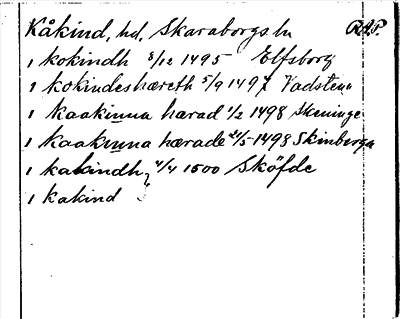 Kåkind, hd, Skaraborgs ln RAP.
i kokindh 8/12 1495 Elfsborg
i kokindeshæreth 5/9 1497 Vadstena
i Kaakinna hærad 1/2 1498 Skeninge
i Kaakinna hærade 24/5 1498 Skinberga
i kakindh 4/4 1500 Sköfde
i Kakind